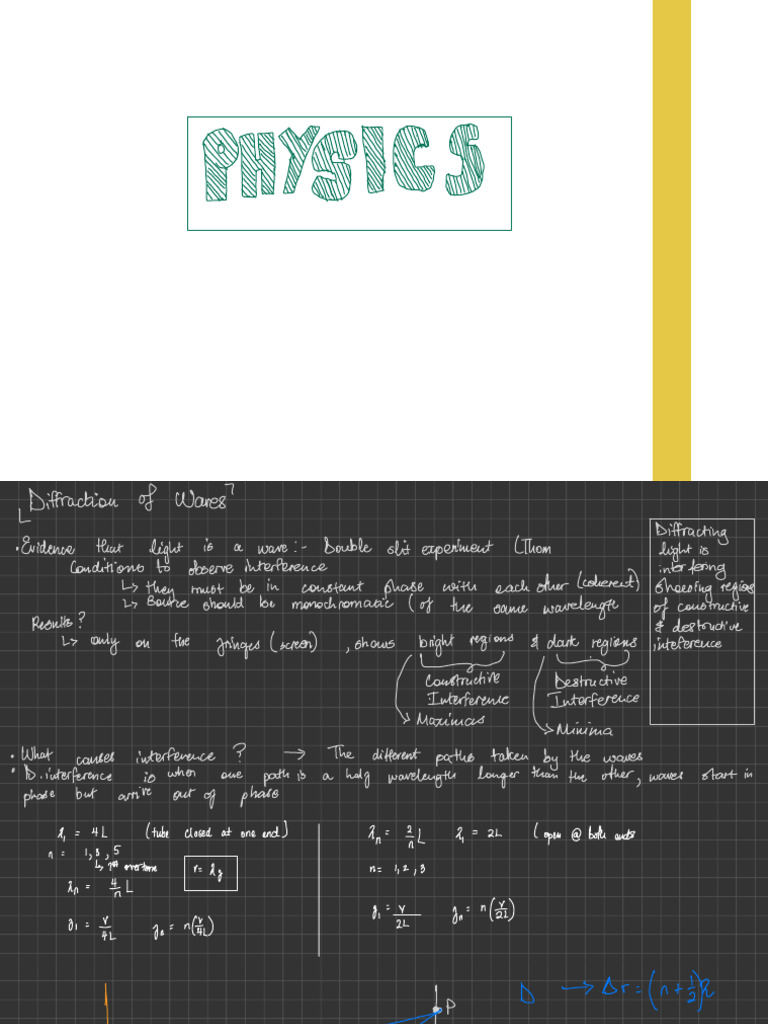 PHYSICS
Diffraction of Waves
• Evidence that light is a wave :- Double slit experiment (Thom
Conditions to observe interference
↳ they must be in constant phase with each other (coherent)
↳ Source should be monochromatic (of the same wavelength
Results?
↳ only on the fringes (screen), shows bright regions & dark regions
Constructive Interference
→ Maximas
Destructive Interference
→ Minima
Diffracting
light is
interfering
showing regions
of constructive
& destructive
interference
• What causes interference? → The different paths taken by the waves
• D. interference is when one path is a half wavelength longer than the other, waves start in
phase but arrive out of phase
λ₁ = 4L (tube closed at one end)
n = 1, 3, 5
↳ 1st overtone
λn = 4/n L
v = λf
f₁ = v/4L fn = n(v/4L)
λn = 2/n L λ₁ = 2L (open @ both ends
n = 1, 2, 3
f₁ = v/2L fn = n(v/2L)
D → Δr = (n + 1/2)λ
P